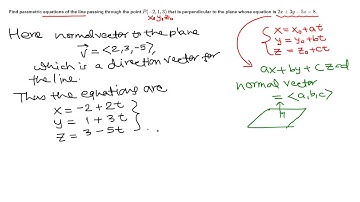 Find parametric equations of the line passing through the point P(−2, 1, 3) that is perpendicular to the plane whose equation is 2x + 3y − 5z = 8.
x₀ y₀ z₀
Here normal vector to the plane
r⃗ = <2, 3, -5>,
which is a direction vector for
the line.
Thus the equations are
x = -2 + 2t
y = 1 + 3t
z = 3 - 5t
x = x₀ + at
y = y₀ + bt
z = z₀ + ct
ax + by + cz = d
normal vector
= <a, b, c>